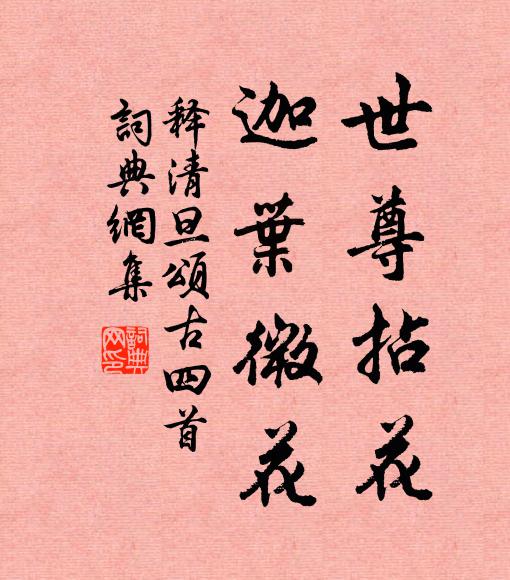 世尊拈花
迦葉微花
释清旦頌古四首
詞典網集
詞典网印